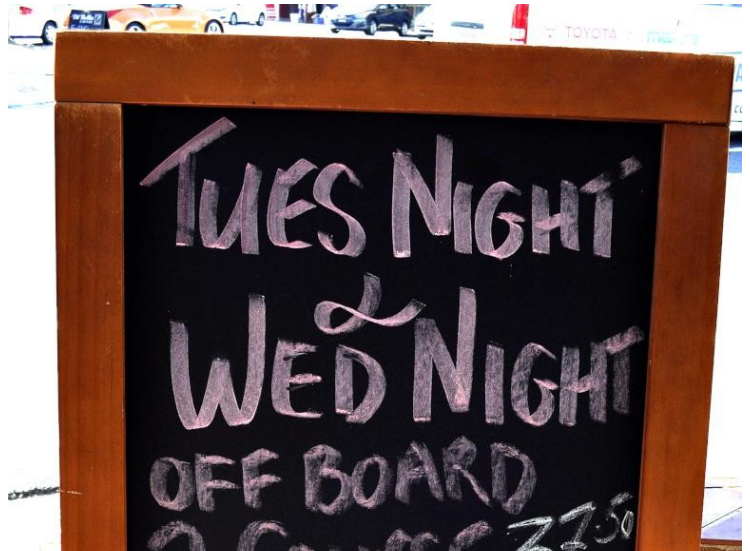 TOYOTA
TUES NIGHT
&
WED NIGHT
OFF BOARD
2 COURSE